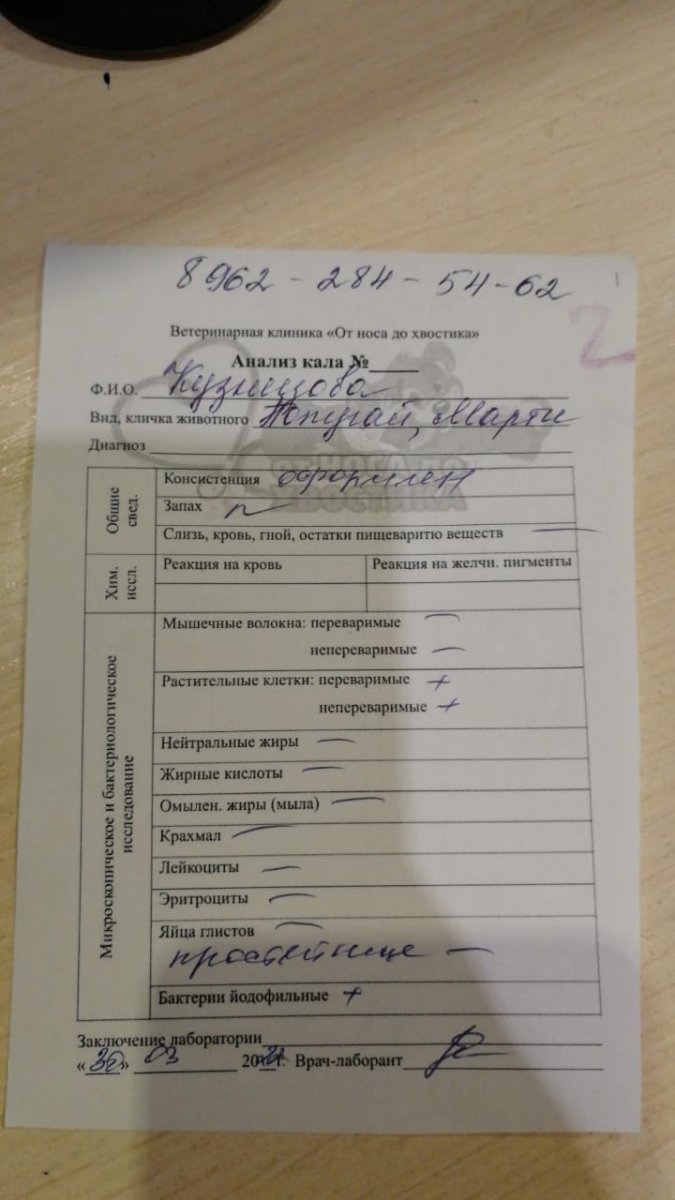 8962-284-54-62
2
Ветеринарная клиника «От носа до хвостика»
Анализ кала №
Ф.И.О. Кузнецова
Вид, кличка животного Попугай, Марти
Диагноз
Общие свед.
Консистенция оформлен
Запах
Слизь, кровь, гной, остатки пищеваритю веществ —
Хим. иссл.
Реакция на кровь
Реакция на желчн. пигменты
Микроскопическое и бактериологическое исследование
Мышечные волокна: переваримые —
непереваримые —
Растительные клетки: переваримые +
непереваримые +
Нейтральные жиры —
Жирные кислоты —
Омылен. жиры (мыла) —
Крахмал —
Лейкоциты —
Эритроциты —
Яйца глистов —
простейшие —
Бактерии йодофильные +
Заключение лаборатории
«30» 03 20 г. Врач-лаборант